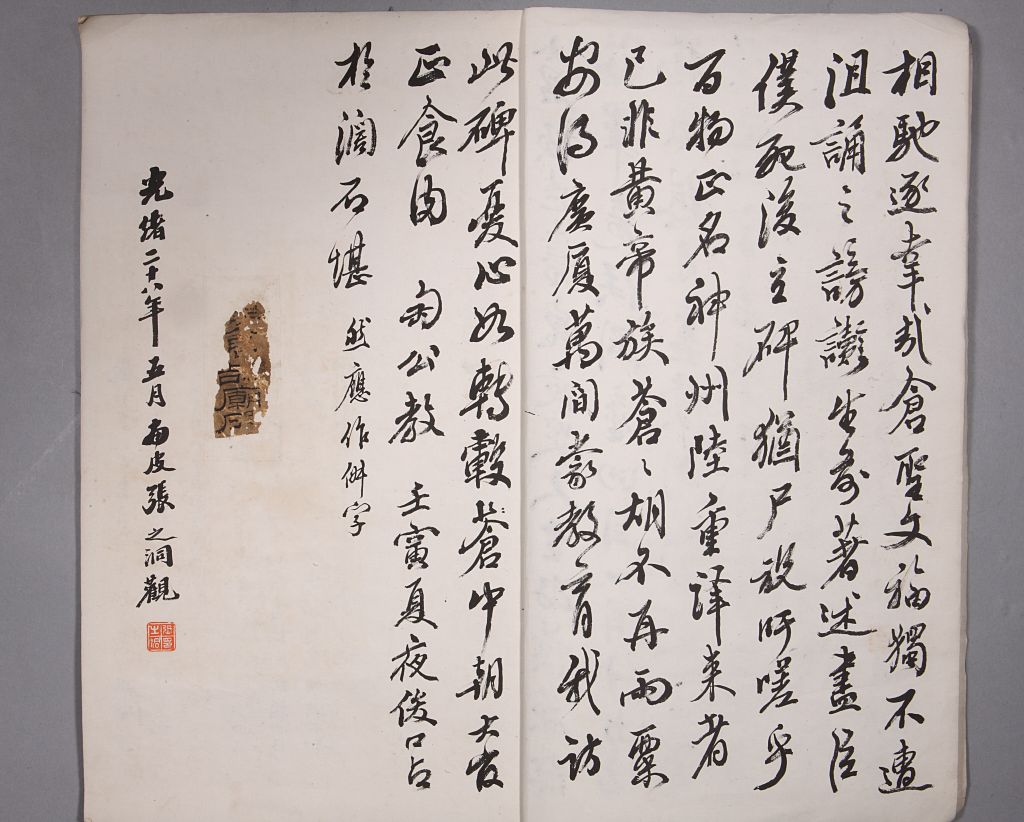 相馳逐幸哉倉聖文福獨不遭
沮誦之謗譏生前著述盡臣
僕死後立碑猶尸祝吁嗟乎
百物正名神州陸重譯来者
已非黄帝族蒼之胡不再雨粟
安得廣厦萬間豢教育我訪
此碑憂心如轉轂蒼中朝大官
正食肉 匋公教 壬寅夏夜俊口占
於濶石堪 然應作倂字
光緒二十八年五月南皮張之洞觀